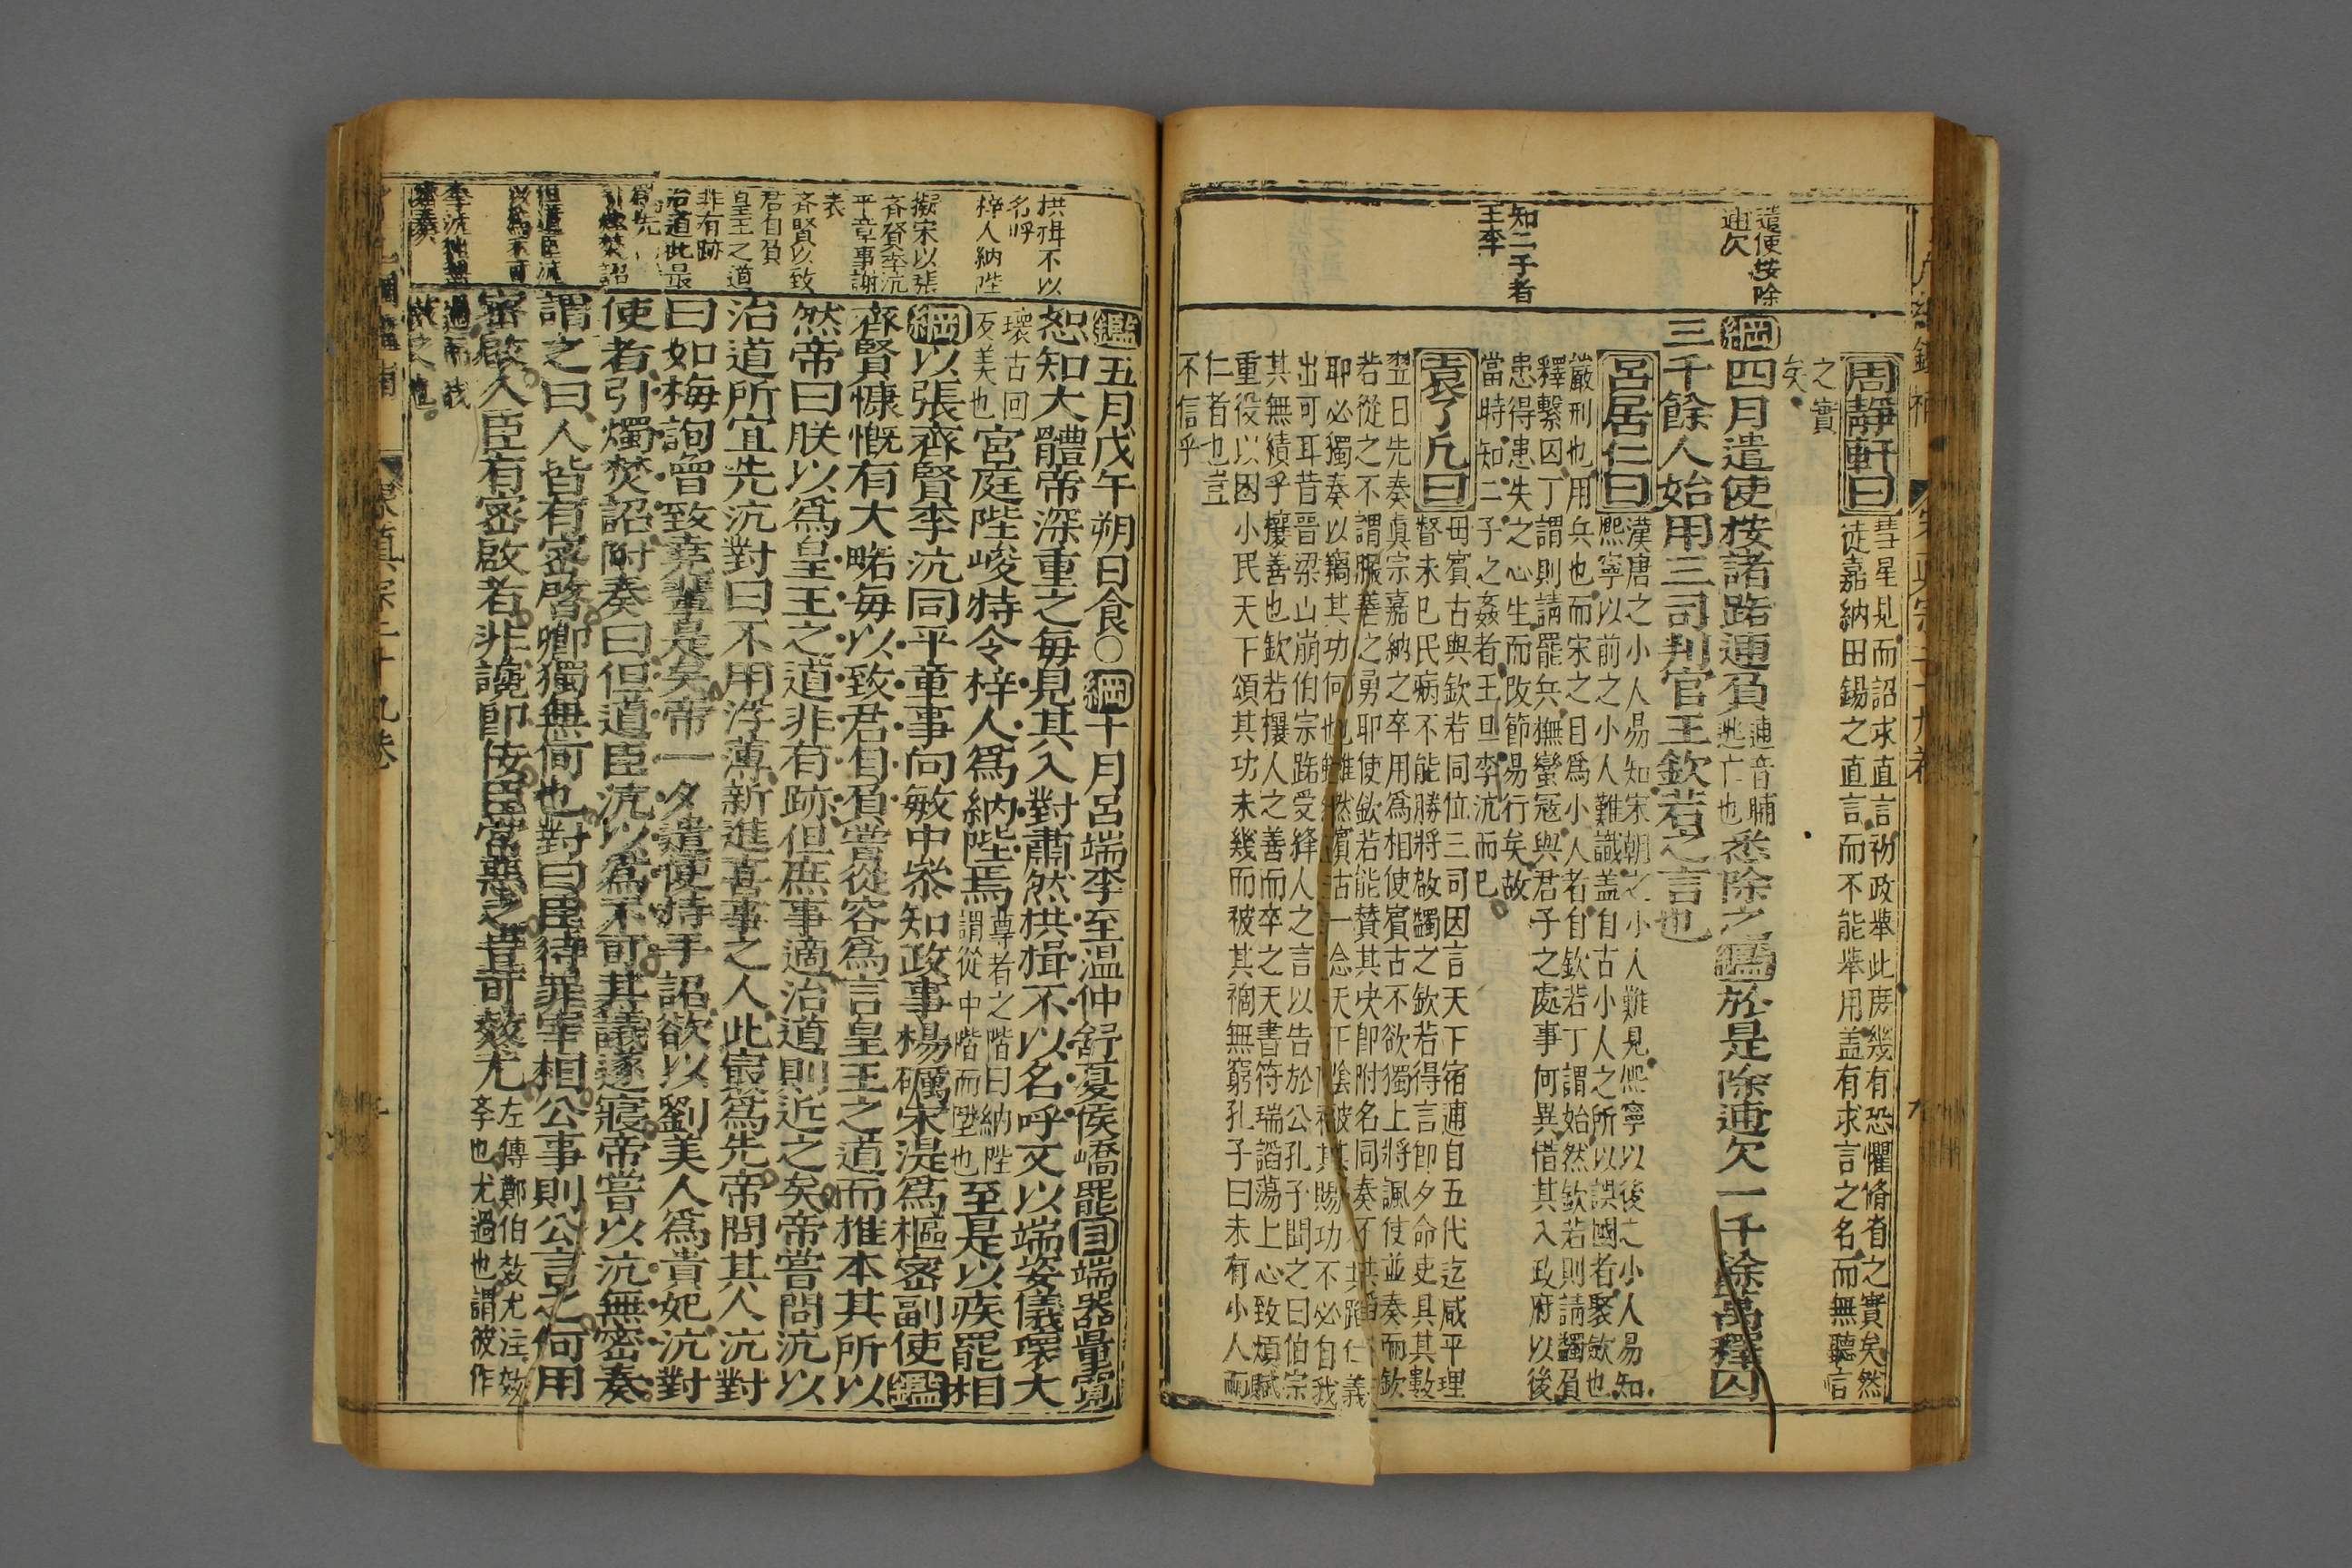 遣使按除
逋欠
知二子者
王李
周靜軒曰
彗星見而詔求直言初政舉此庶幾有恐懼脩省之實矣然
從嘉納田錫之直言而不能舉用盖有求言之名而無聽言
之實
矣
綱四月遣使按諸路逋負逋音晡
逃亡也
悉除之鑑於是除逋欠一千餘萬釋囚
三千餘人始用三司判官王欽若之言也
呂居仁曰
漢唐之小人易知宋朝之小人難見熙寧以後之小人易知
熙寧以前之小人難識盖自古小人之所以誤國者聚斂也
嚴刑也用兵也而宋之目為小人者自欽若丁謂始然欽若則請蠲負
釋繫囚丁謂則請罷兵撫蠻寇與君子之處事何異惜其入政府以後
患得患失之心生而改節易行矣故
當時知二子之姦者王旦李沆而巳
袁了凡曰
毋賓古與欽若同位三司因言天下宿逋自五代迄咸平理
督未巳民病不能勝將啟蠲之欽若得言即夕命吏具其數
翌日先奏真宗嘉納之卒用為相使賓古不欲獨上將諷使並奏而欽
若從之不謂服善之勇耶使欽若能贊其决即附名同奏不
耶必獨奏以竊其功何也雖然賓古一念天下陰被其賜功不必自我
出可耳昔晉梁山崩伯宗路受絳人之言以告於公孔子聞之曰伯宗
其無績乎攘善也欽若攘人之善而卒之天書符瑞謟蕩上心致煩賦
重役以困小民天下頌其功未幾而被其禍無窮孔子曰未有小人而
仁者也豈
不信乎
拱揖不以
名呼
梓人納陛
擬宋以張
齊賢李沆
平章事謝
表
齊賢以致
君自負
皇王之道
非有跡
治道此最
為先
引燭焚詔
但道臣沆
以為不可
李沆獨無
密奏
鑑五月戊午朔日食〇綱十月呂端李至温仲舒夏侯嶠罷目端器量寬
恕知大體帝深重之每見其入對肅然拱揖不以名呼又以端姿儀瓌大
瓌古回
反美也
宮庭陛峻特令梓人為納陛焉尊者之階曰納陛
謂從中階而陞也
至是以疾罷相
綱以張齊賢李沆同平章事向敏中叅知政事楊礪宋湜為樞密副使鑑
齊賢慷慨有大略每以致君自負嘗從容為言皇王之道而推本其所以
然帝曰朕以為皇王之道非有跡但庶事適治道則近之矣帝嘗問沆以
治道所宜先沆對曰不用浮薄新進喜事之人此最為先帝問其人沆對
曰如梅詢曾致堯輩是矣帝一夕遣使持手詔欲以劉美人為貴妃沆對
使者引燭焚詔附奏曰但道臣沆以為不可其議遂寢帝嘗以沆無密奏
謂之曰人皆有密啓卿獨無何也對曰臣待罪宰相公事則公言之何用
密啟人臣有密啟者非讒即佞臣常惡之豈可效尤左傳鄭伯效尤注效
李也尤過也謂彼作
過而我
效之也